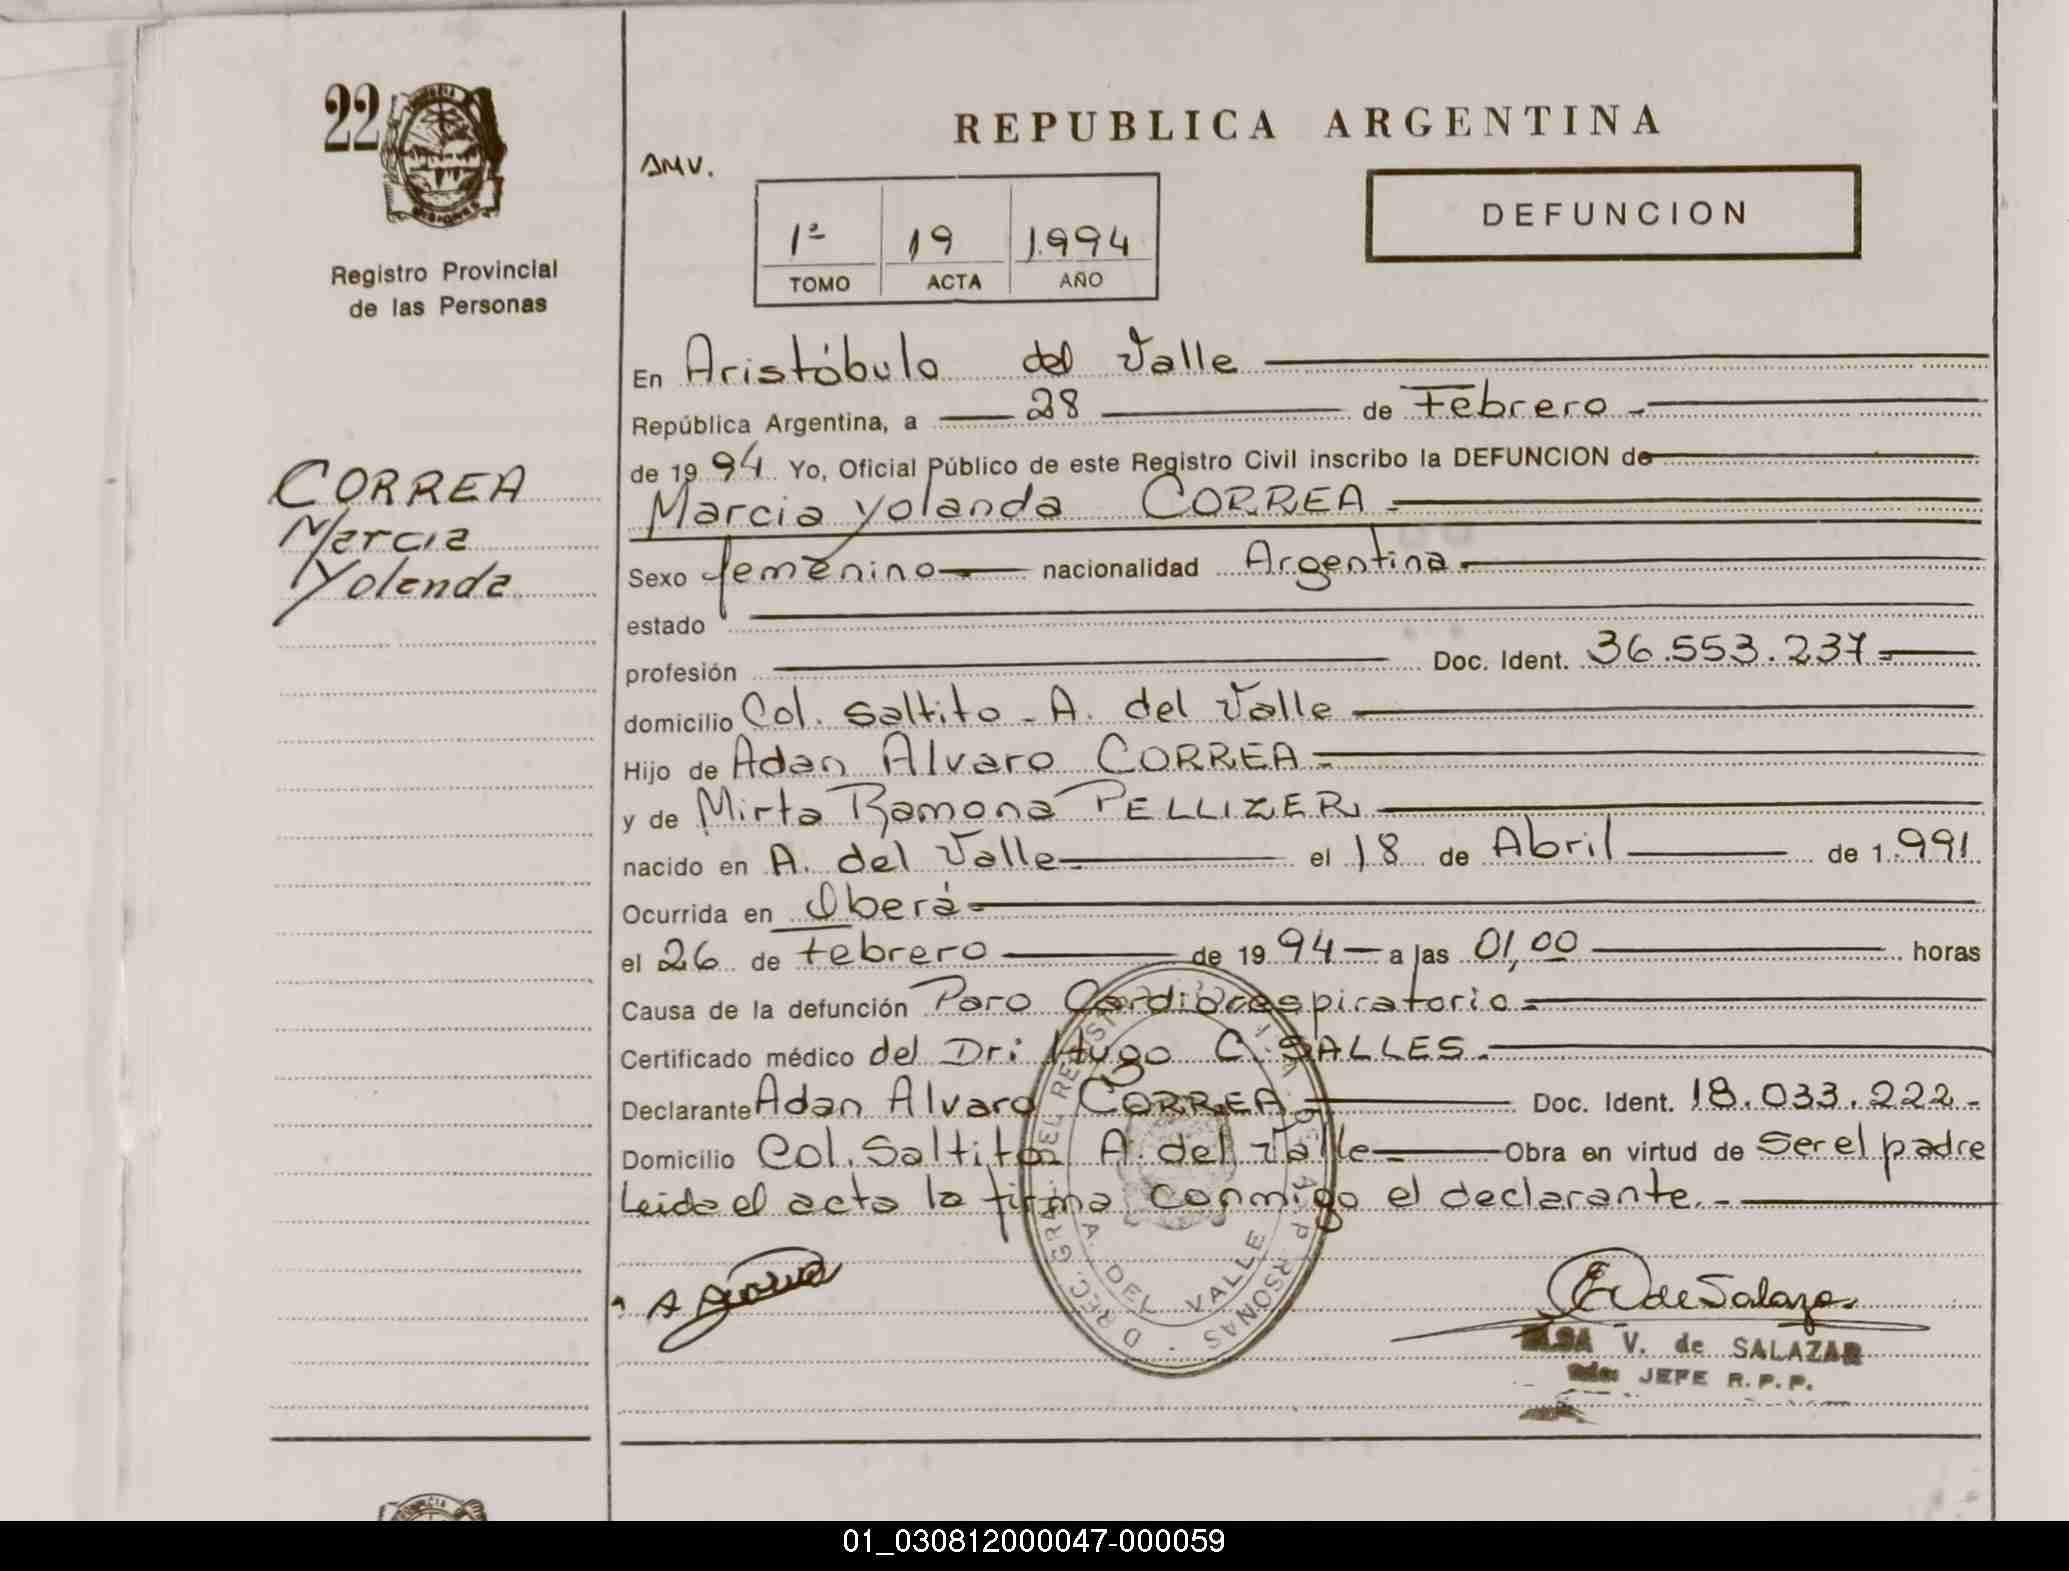 22
Registro Provincial
de las Personas
CORREA
Marcia
Yolanda
REPUBLICA ARGENTINA
AMV.
1ª 19 1.994
TOMO ACTA AÑO
DEFUNCION
En Aristóbulo del Valle
República Argentina, a 28 de Febrero
de 19 94 Yo, Oficial Público de este Registro Civil inscribo la DEFUNCION de
Marcia Yolanda CORREA
Sexo femenino nacionalidad Argentina
estado
profesión Doc. Ident. 36.553.237
domicilio Col. Saltito - A. del Valle
Hijo de Adan Alvaro CORREA
y de Mirta Ramona PELLIZER
nacido en A. del Valle el 18 de Abril de 1.991
Ocurrida en Oberá
el 26 de Febrero de 19 94 a las 01,00 horas
Causa de la defunción Paro Cardiorespiratorio
Certificado médico del Dr: Hugo C. SALLES
Declarante Adan Alvaro CORREA Doc. Ident. 18.033.222
Domicilio Col. Saltito A. del Valle Obra en virtud de Ser el padre
Leida el acta la firma conmigo el declarante.-
A. DEL VALLE
V. de SALAZAR
JEFE R.P.P.
01_030812000047-000059